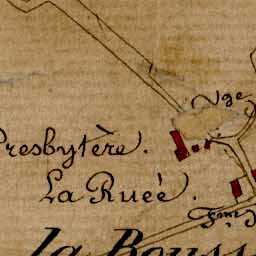 Vge
Presbytère.
La Rueé.
Fme
la Bouss